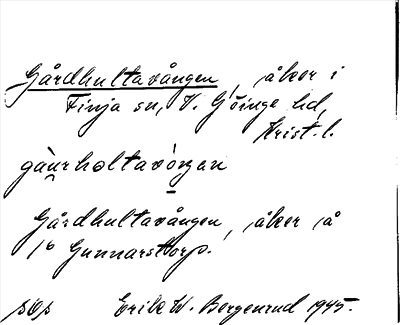 Gårdhultavången, åker i
Finja sn, V. Göinge hd,
Krist. l.
gàu̯rholtavòŋen
Gårdhultavången, åker å
1⁶ Gunnarstorp.
Erik W. Bergenrud 1945.